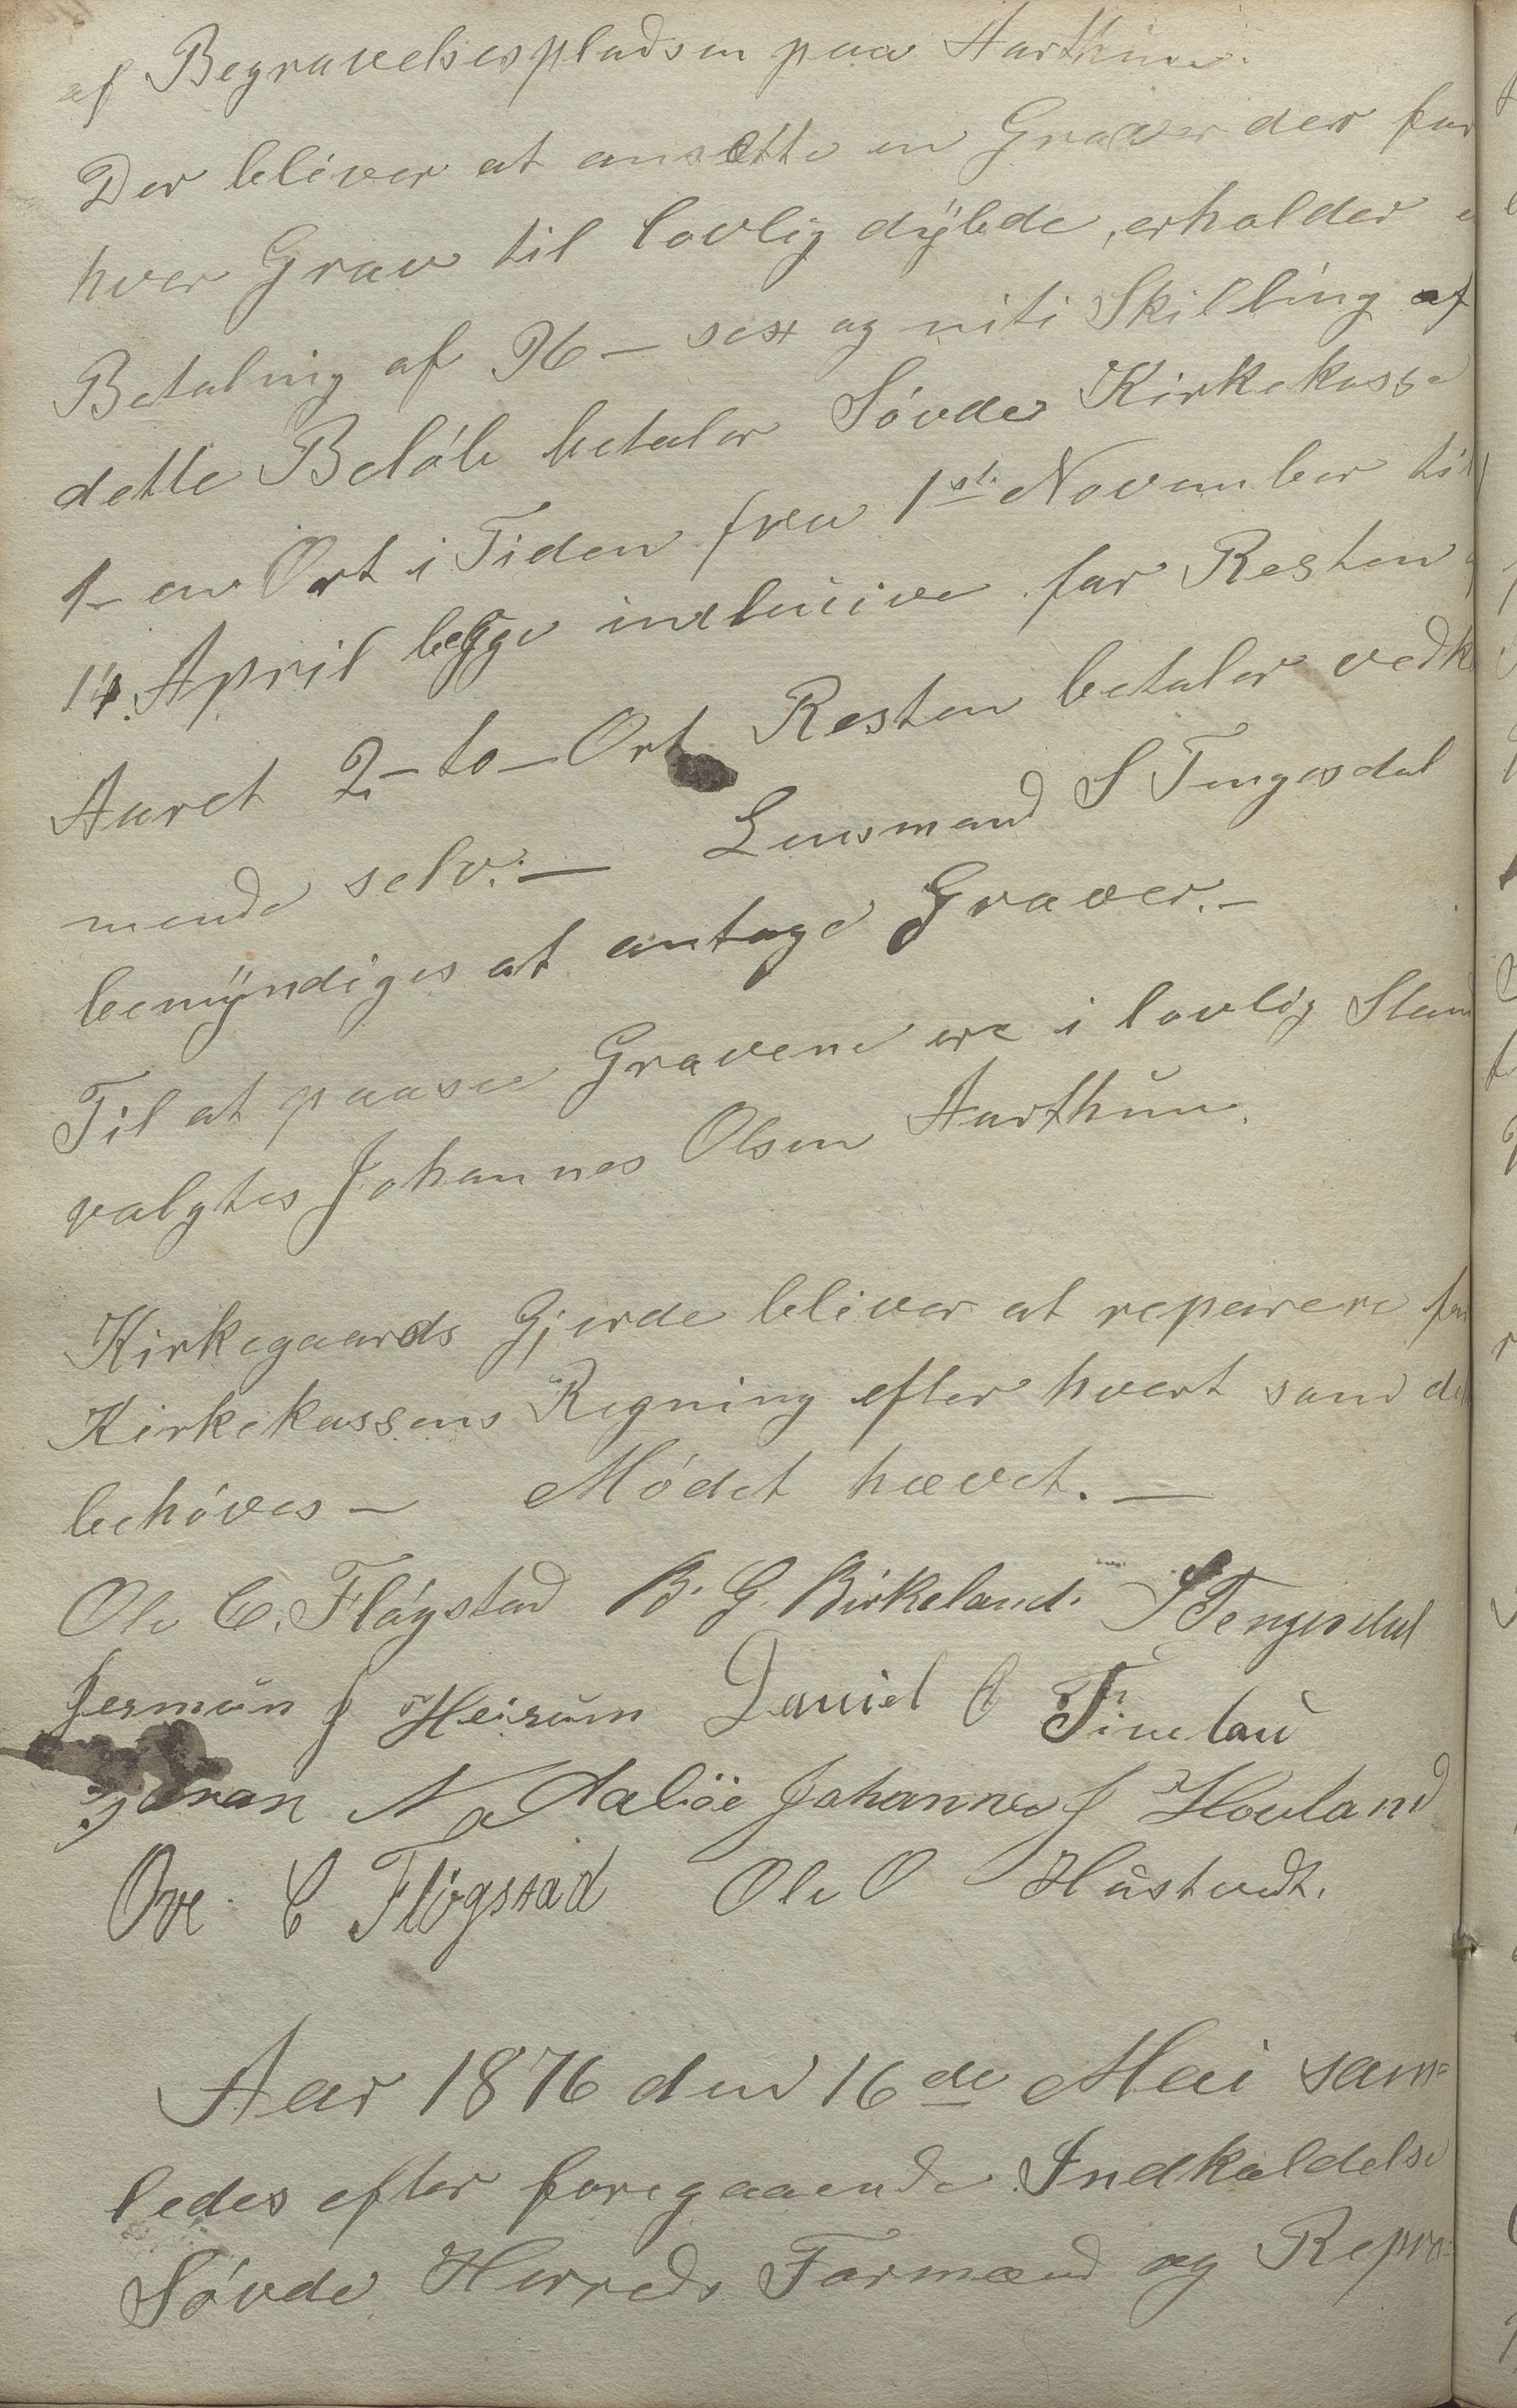 af Begravelsespladsen paa Aarthun.
Der bliver at ansætte en Graver der for
hver Grav til lovlig dÿbde, erholder e
Betaling af 96 – sex og niti Skilling af
dette Beløb betaler Søvde Kirkekasse
1 – en Ort i Tiden fra 1ste November til
14. April begge inclusive for Resten
Aaret 2 – to – Ort Resten betaler vedk
mende selv: – Lensmand S Tengesdal
bemÿndiges at antage Graver. –
Til at paasee Gravene ere i lovlig Stand
valgtes Johannes Olsen Aarthun.
Kirkegaards Gjerde bliver at reparere for
Kirkekassens Regning efter hvert som de
behøves – Mødet hævet. –
Ole C. Fløgstad B. G. Birkeland. S Tengesdal
Jermun J Heirum Daniel O
Gøran N Aabøe Johannes J Hovland
Ove C Fløgstad Ole O Hustvedt.
Aar 1876 den 16de Mai sam=
ledes efter foregaaende Indkaldelse
Søvde Herreds Formænd og Repræ=